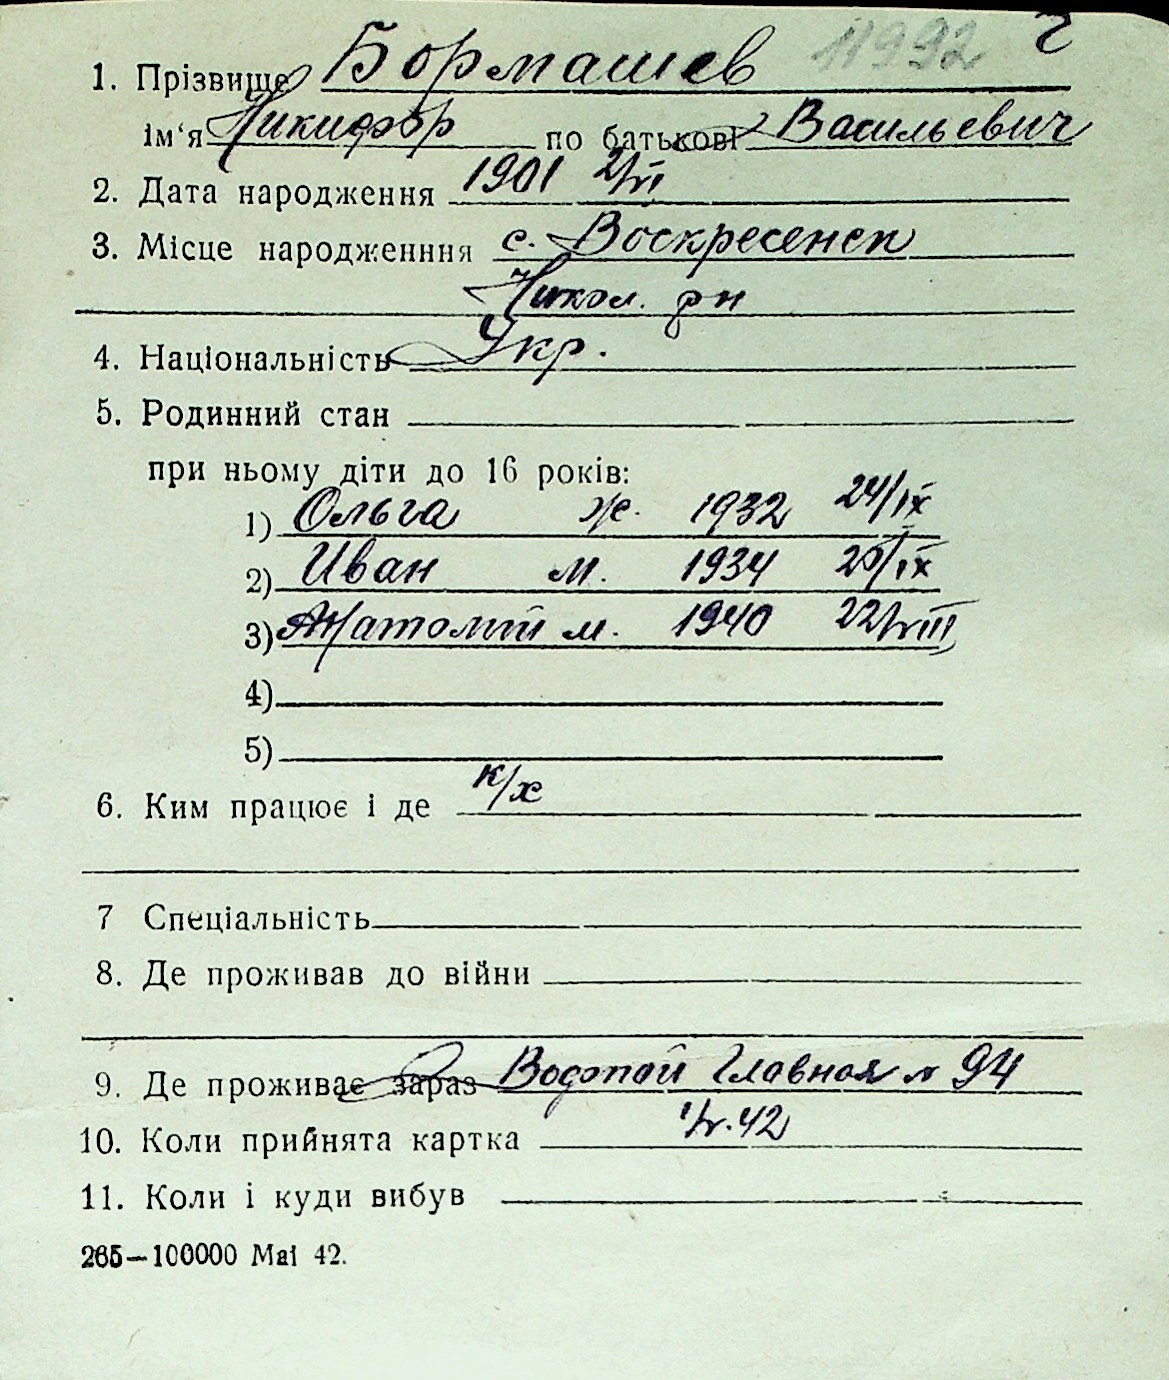 11992
1. Прізвище Бормашев
ім‘я Никифор по батькові Васильевич
2. Дата народження 1901 2/VI
3. Місце народженння с. Воскресенск
Никол. рн
4. Національність Укр.
5. Родинний стан
при ньому діти до 16 років:
1) Ольга ж. 1932 24/IX
2) Иван м. 1934 /IX
3) Анатолий м. 1940 22/VIII
4)
5)
6. Ким працює і де к/х
7 Спеціальність
8. Де проживав до війни
9. Де проживає зараз Водопой Главная № 94
10. Коли прийнята картка 1/V.42
11. Коли і куди вибув
265—100000 Mai 42.